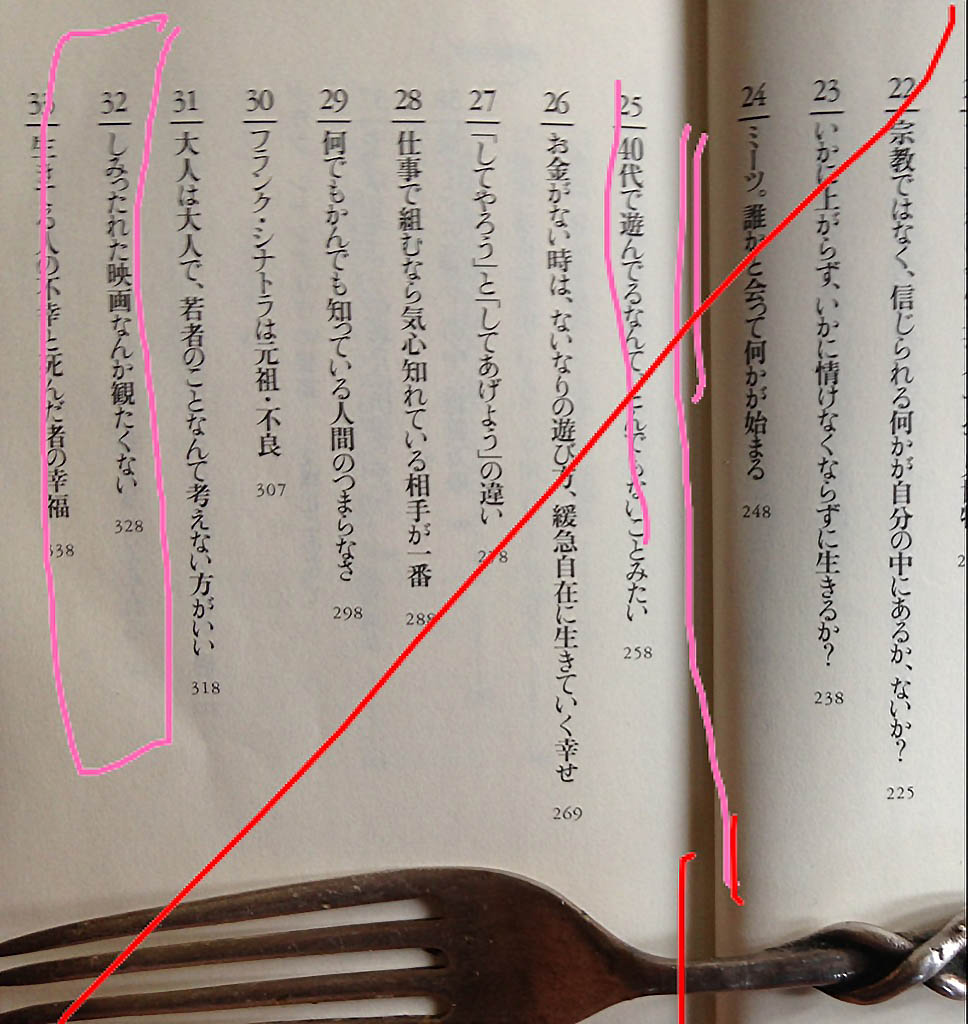 22 宗教ではなく、信じられる何かが自分の中にあるか、ないか? 225
23 いかに上がらず、いかに情けなくならずに生きるか? 238
24 ミーツ。誰かと会って何かが始まる 248
25 40代で遊んでるなんて、とんでもないことみたい 258
26 お金がない時は、ないなりの遊び方、緩急自在に生きていく幸せ 269
27 「してやろう」と「してあげよう」の違い 278
28 仕事で組むなら気心知れている相手が一番 288
29 何でもかんでも知っている人間のつまらなさ 298
30 フランク・シナトラは元祖・不良 307
31 大人は大人で、若者のことなんて考えない方がいい 318
32 しみったれた映画なんか観たくない 328
33 生きてる人の不幸と死んだ者の幸福 338